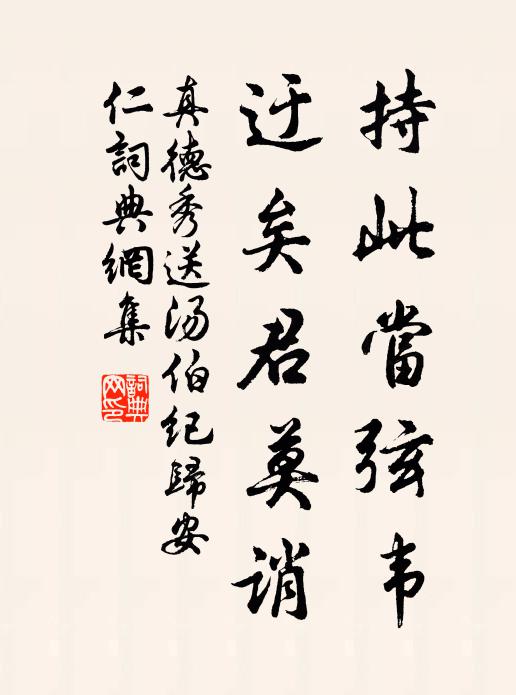 持此當弦韦
迂矣君莫誚
真德秀送汤伯纪歸安
仁詞典網集
詞典
网印